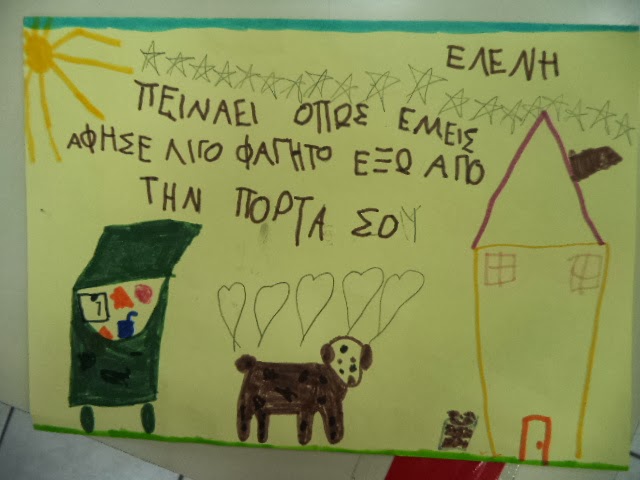 ΕΛΕΝΗ
ΠΕΙΝΑΕΙ ΟΠΩΣ ΕΜΕΙΣ
ΑΦΗΣΕ ΛΙΓΟ ΦΑΓΗΤΟ ΕΞΩ ΑΠΟ
ΤΗΝ ΠΟΡΤΑ ΣΟΥ